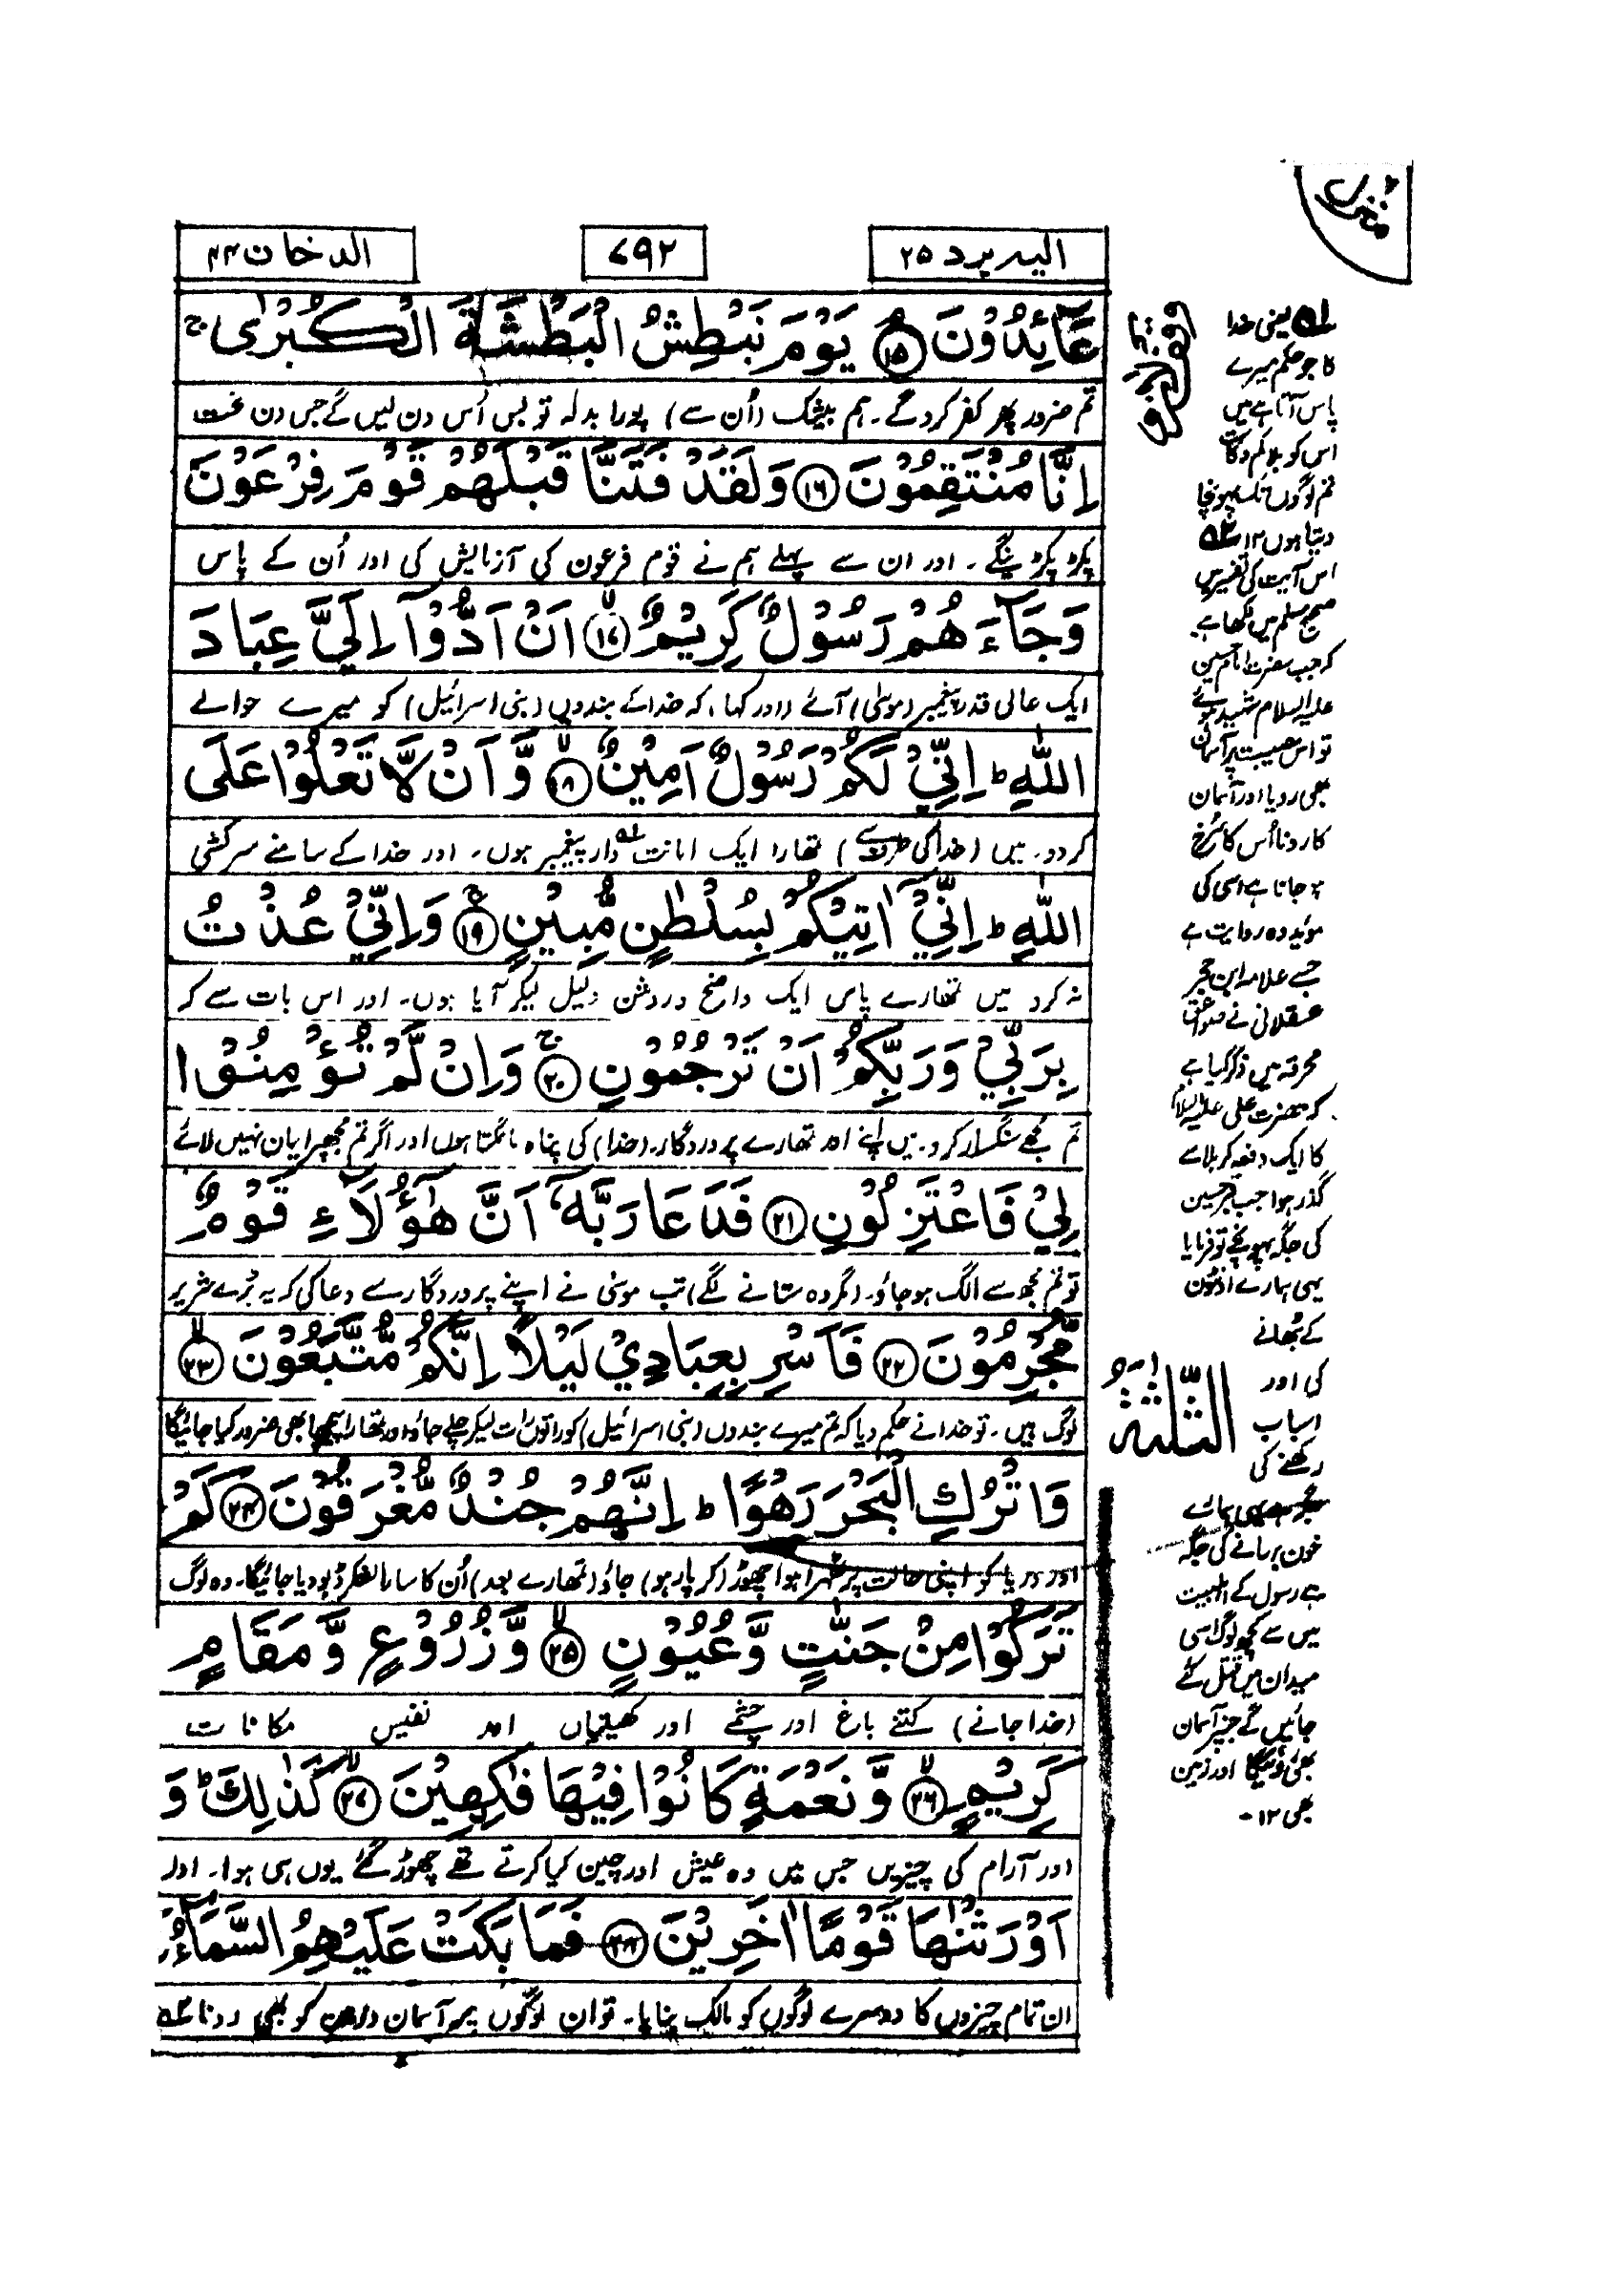 منزل ۶
الیه یرد ۲۵
۷۹۲
الدخان ۴۴
عَآئِدُوْنَ ﴿۱۵﴾ یَوْمَ نَبْطِشُ الْبَطْشَةَ الْكُبْرٰى ۚ
تم ضرور پھر کفر کروگے۔ ہم بیشک (اُن سے) پورا بدلہ تو بس اُس دن لیں گے جس دن سخت
اِنَّا مُنْتَقِمُوْنَ ﴿۱۶﴾ وَلَقَدْ فَتَنَّا قَبْلَهُمْ قَوْمَ فِرْعَوْنَ
پکڑ پکڑینگے۔ اور ان سے پہلے ہم نے قوم فرعون کی آزمایش کی اور اُن کے پاس
وَجَآءَهُمْ رَسُوْلٌ كَرِیْمٌ ﴿۱۷﴾ اَنْ اَدُّوْۤا اِلَیَّ عِبَادَ
ایک عالی قدر پیغمبر (موسیٰ) آئے (اور کہا) کہ خدا کے بندوں (بنی اسرائیل) کو میرے حوالے
اللّٰهِ ؕ اِنِّیْ لَكُمْ رَسُوْلٌ اَمِیْنٌ ﴿۱۸﴾ وَّ اَنْ لَّا تَعْلُوْا عَلَى
کردو۔ میں (خدا کی طرف سے) تمھارا ایک امانت دار پیغمبر ہوں۔ اور خدا کے سامنے سرکشی
اللّٰهِ ؕ اِنِّیْۤ اٰتِیْكُمْ بِسُلْطٰنٍ مُّبِیْنٍ ﴿۱۹﴾ وَاِنِّیْ عُذْتُ
نہ کرو میں تمھارے پاس ایک واضح و روشن دلیل لیکر آیا ہوں۔ اور اس بات سے کہ
بِرَبِّیْ وَرَبِّكُمْ اَنْ تَرْجُمُوْنِ ﴿۲۰﴾ وَاِنْ لَّمْ تُؤْمِنُوْا
تم مجھے سنگسار کرو۔ میں اپنے اور تمھارے پروردگار۔ (خدا) کی پناہ مانگتا ہوں اور اگر تم مجھ پر ایمان نہیں لائے
لِیْ فَاعْتَزِلُوْنِ ﴿۲۱﴾ فَدَعَا رَبَّهٗۤ اَنَّ هٰۤؤُلَآءِ قَوْمٌ
تو تم مجھ سے الگ ہوجاؤ۔ (مگر وہ ستانے لگے) تب موسیٰ نے اپنے پروردگار سے دعا کی کہ یہ بڑے شریر
مُّجْرِمُوْنَ ﴿۲۲﴾ فَاَسْرِ بِعِبَادِیْ لَیْلًا اِنَّكُمْ مُّتَّبَعُوْنَ ﴿۲۳﴾
لوگ ہیں۔ تو خدا نے حکم دیا کہ تم میرے بندوں (بنی اسرائیل) کو راتوں رات لیکر چلے جاؤ اور تمھارا پیچھا بھی ضرور کیا جائیگا
وَاتْرُكِ الْبَحْرَ رَهْوًا ؕ اِنَّهُمْ جُنْدٌ مُّغْرَقُوْنَ ﴿۲۴﴾ كَمْ
اور دریا کو اپنی حالت پر ٹھہرا ہوا چھوڑ (کر پار ہو) جاؤ (تمھارے بعد) اُن کا سارا لشکر ڈبودیا جائیگا۔ وہ لوگ
تَرَكُوْا مِنْ جَنّٰتٍ وَّعُیُوْنٍ ﴿۲۵﴾ وَّزُرُوْعٍ وَّمَقَامٍ
(خدا جانے) کتنے باغ اور چشمے اور کھیتیاں اور نفیس مکانات
كَرِیْمٍ ﴿۲۶﴾ وَّنَعْمَةٍ كَانُوْا فِیْهَا فٰكِهِیْنَ ﴿۲۷﴾ كَذٰلِكَ ؕ وَ
اور آرام کی چیزیں جس میں وہ عیش اور چین کیا کرتے تھے چھوڑ گئے یوں ہی ہوا۔ اور
اَوْرَثْنٰهَا قَوْمًا اٰخَرِیْنَ ﴿۲۸﴾ فَمَا بَكَتْ عَلَیْهِمُ السَّمَآءُ
ان تمام چیزوں کا دوسرے لوگوں کو مالک بنایا۔ تو ان لوگوں پر آسمان و زمین کو بھی رونا
۱ یعنی خدا
کا جو حکم میرے
پاس آتا ہے میں
اس کو بلا کم و کاست
تم لوگوں تک پہونچا
دیتا ہوں ۱۲ ۲
اس آیت کی تفسیر میں
صحیح مسلم میں لکھا ہے
کہ جب حضرت امام حسین
علیہ السلام شہید ہوئے
تو اس مصیبت پر آسمان
بھی رویا اور آسمان
کا رونا اُس کا سُرخ
ہوجانا ہے اسی کی
موئید وہ روایت ہے
جسے علامہ ابن حجر
عسقلانی نے صواعق
محرقہ میں ذکر کیا ہے
کہ حضرت علی علیہ السلام
کا ایک دفعہ کربلا سے
گذر ہوا جب قبر حسین
کی جگہ پہونچے تو فرمایا
یہی ہمارے اونٹوں
کے بٹھانے
کی اور
اسباب
رکھنے کی
جگہ ہے یہی ہمارے
خون بہانے کی جگہ
ہے رسول کے اہلبیت
میں سے کچھ لوگ اسی
میدان میں قتل کئے
جائیں گے جنپر آسمان
بھی روئیگا اور زمین
بھی ۱۲۔
الثلثة